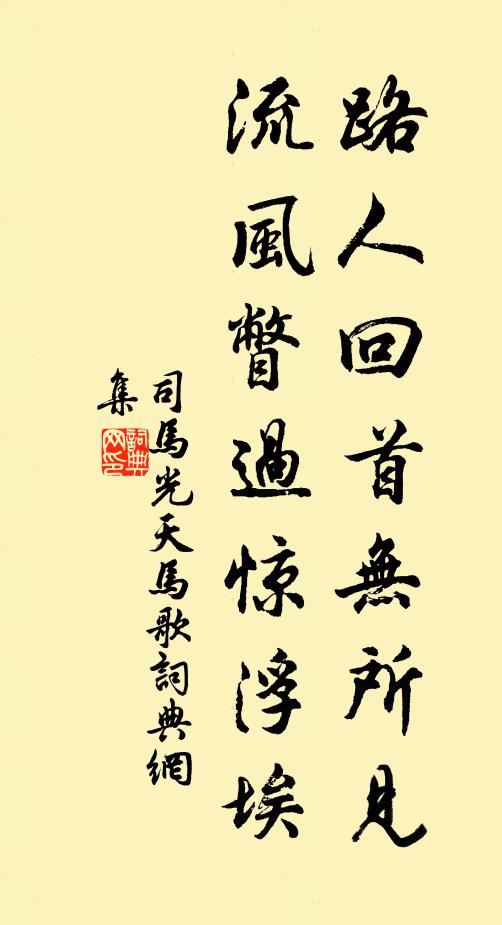 路人回首無所見
流風瞥過惊浮埃
司馬光天馬歌詞典網
集
詞典
网印